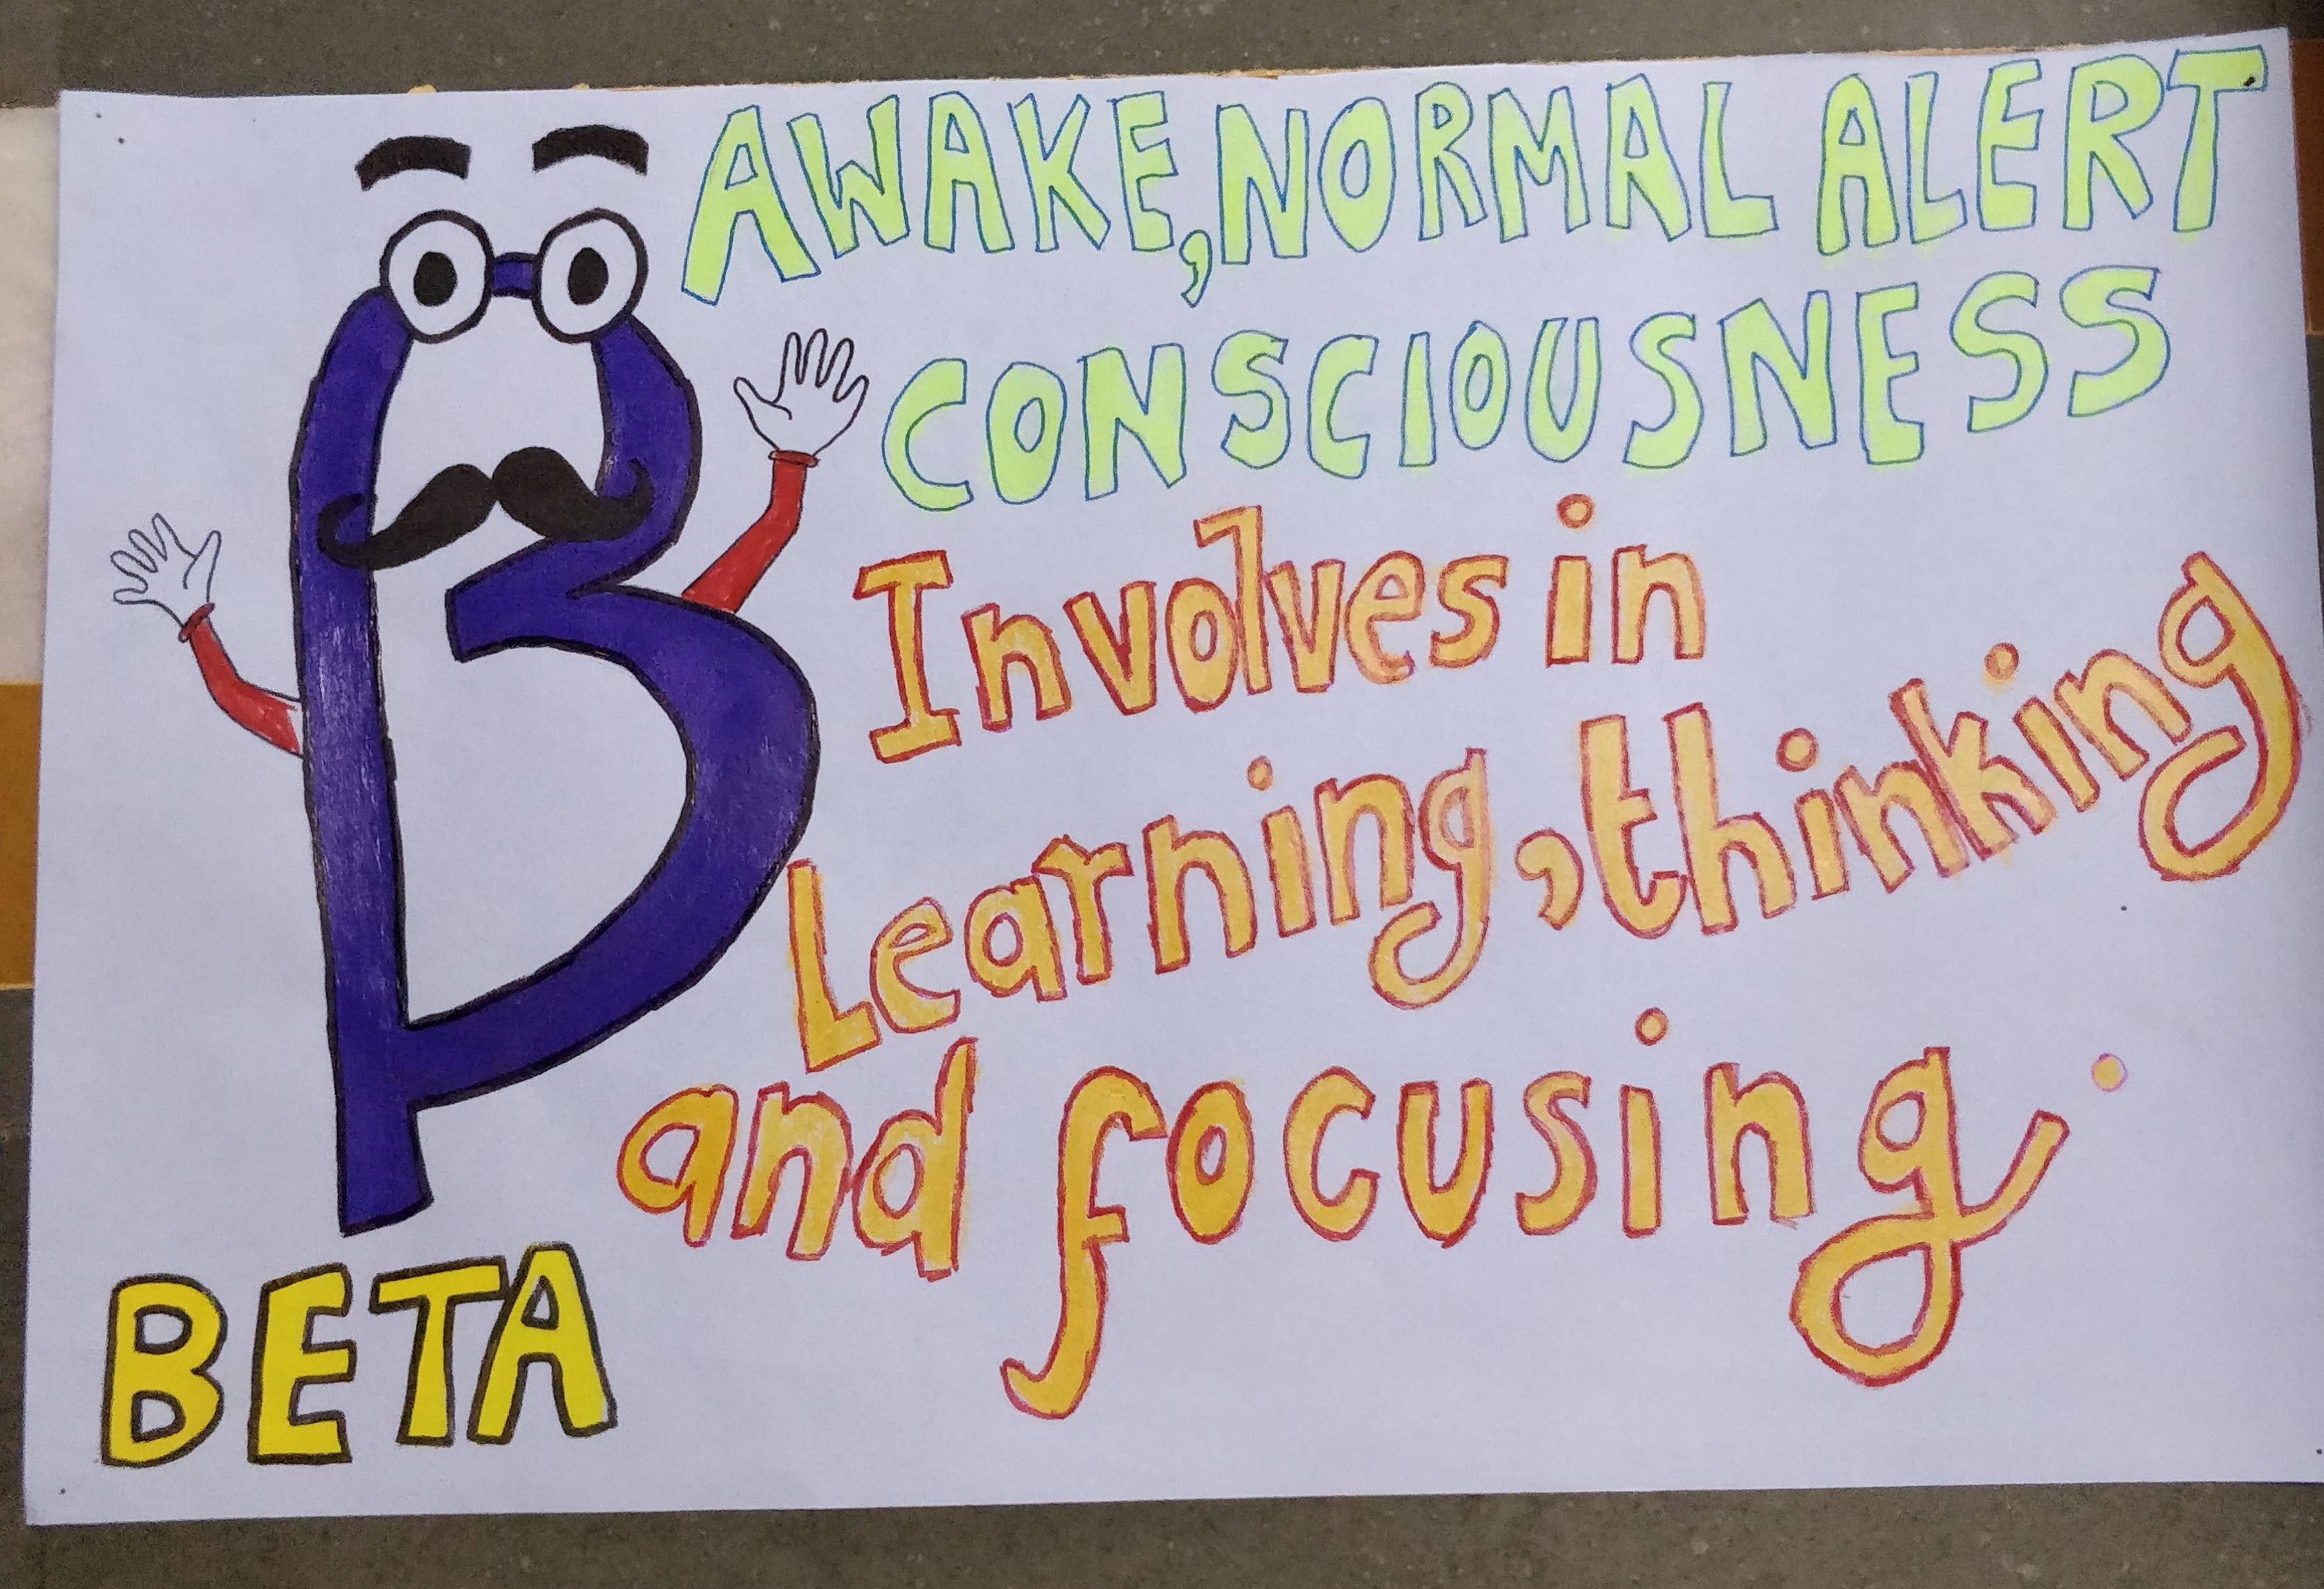 AWAKE, NORMAL ALERT
CONSCIOUSNESS
Involves in
Learning, thinking
and focusing.
β
BETA